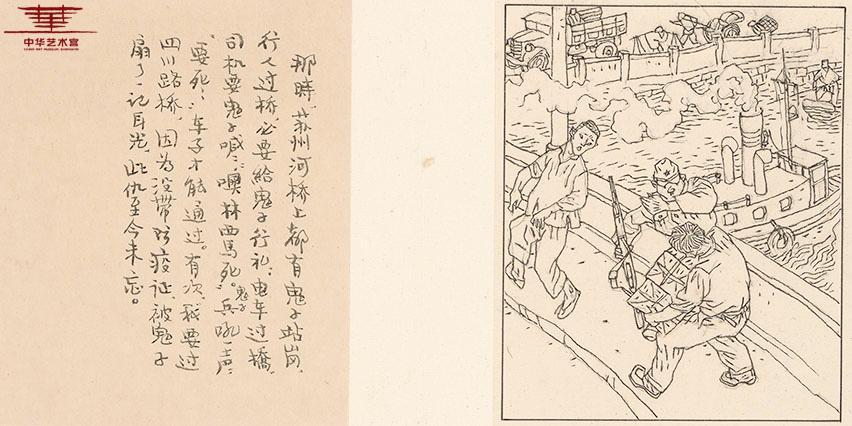 中华艺术宫
那時，苏州河桥上都有鬼子站岗，
行人过桥，必要給鬼子行礼；电车过橋，
司机要鬼子喊：“噢林西馬死”。鬼子兵吼一声：
“要死”，车子才能通过。有次，我要过
四川路桥，因为没带防疫证，被鬼子
扇了一记耳光，此仇至今未忘。